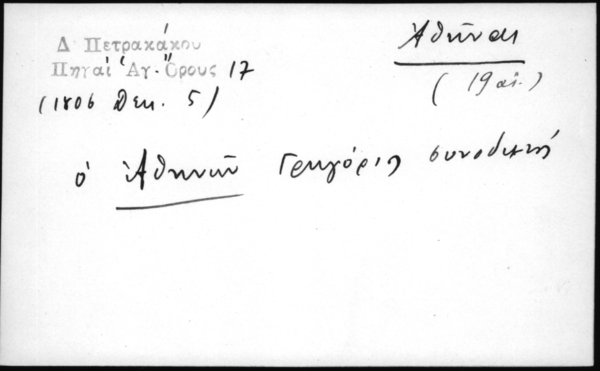 Δ Πετρακάκου
Πηγαὶ Ἁγ. Ὄρους 17
(1806 Δεκ. 5)
Ἀθῆναι
(19 αἰ.)
ὁ Ἀθηνῶν Γρηγόριος συνοδικὴ